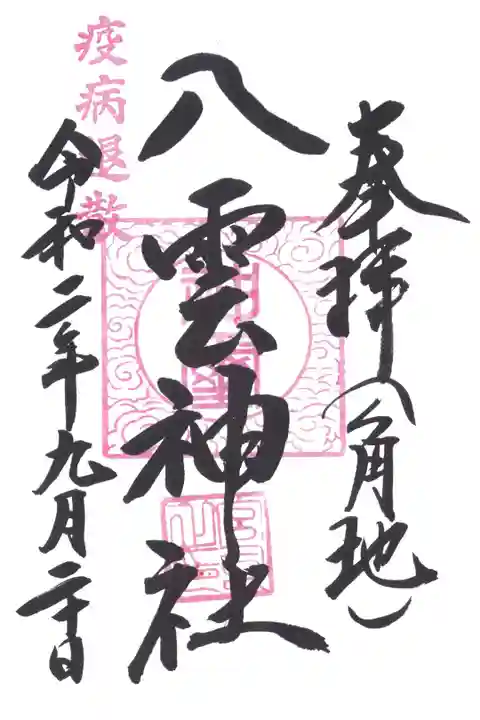 奉拝(角地)
八雲神社
疫病退散
令和二年九月二十日